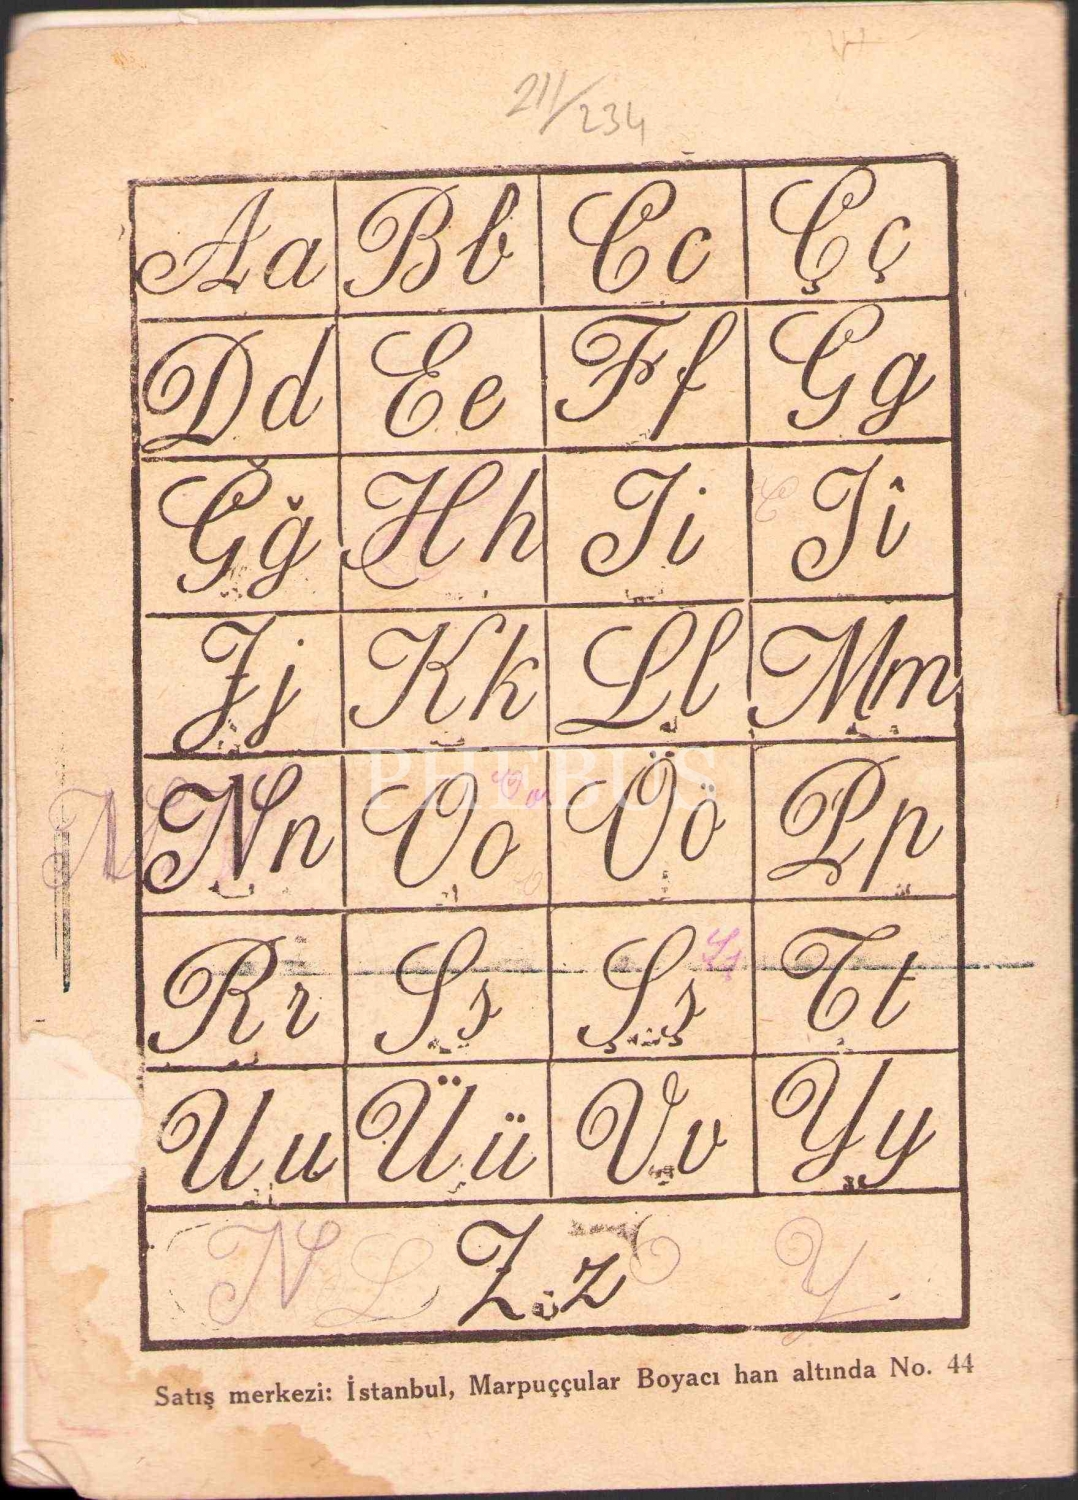 211/234
Aa Bb Cc Çç
Dd Ee Ff Gg
Ğğ Hh Ii Iî
Jj Kk Ll Mm
Nn Oo Öö Pp
Rr Ss Şş Tt
Uu Üü Vv Yy
N L Zz Y.
Satış merkezi: İstanbul, Marpuççular Boyacı han altında No. 44
PHEBUS